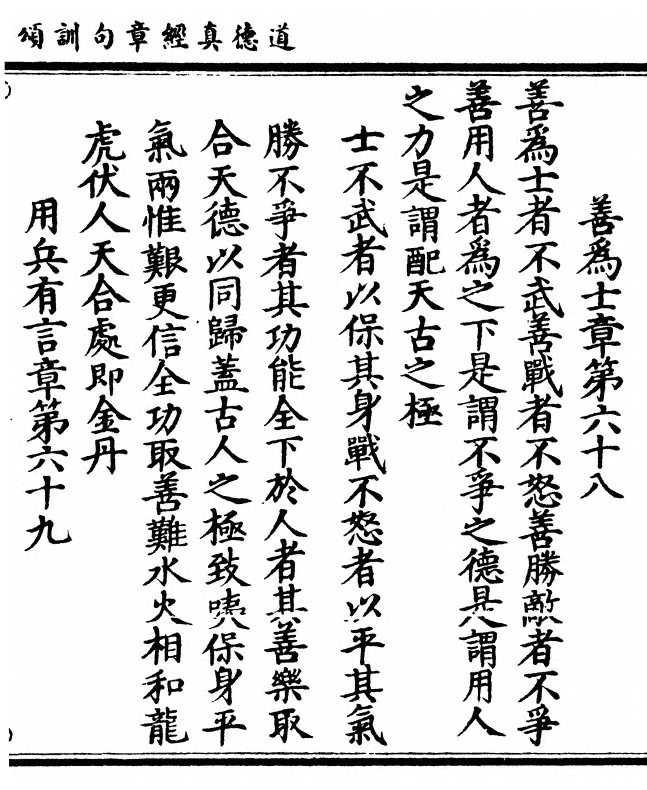 道德真經章句訓頌
善爲士章第六十八
善爲士者不武善戰者不怒善勝敵者不爭
善用人者爲之下是謂不爭之德是謂用人
之力是謂配天古之極
士不武者以保其身戰不怒者以平其氣
勝不爭者其功能全下於人者其善樂取
合天德以同歸蓋古人之極致咦保身平
氣兩惟艱更信全功取善難水火相和龍
虎伏人天合處即金丹
用兵有言章第六十九